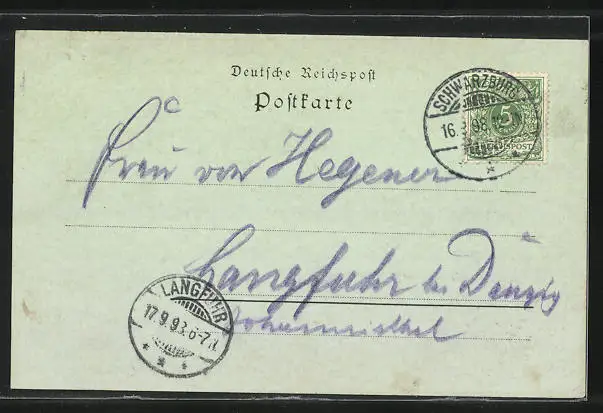 Deutsche Reichspost
Postkarte
SCHWARZBURG
16. 98
5
REICHSPOST
Frau von Hegener
Langfuhr bei Danzig
LANGFUHR
17.9.98.6-7N